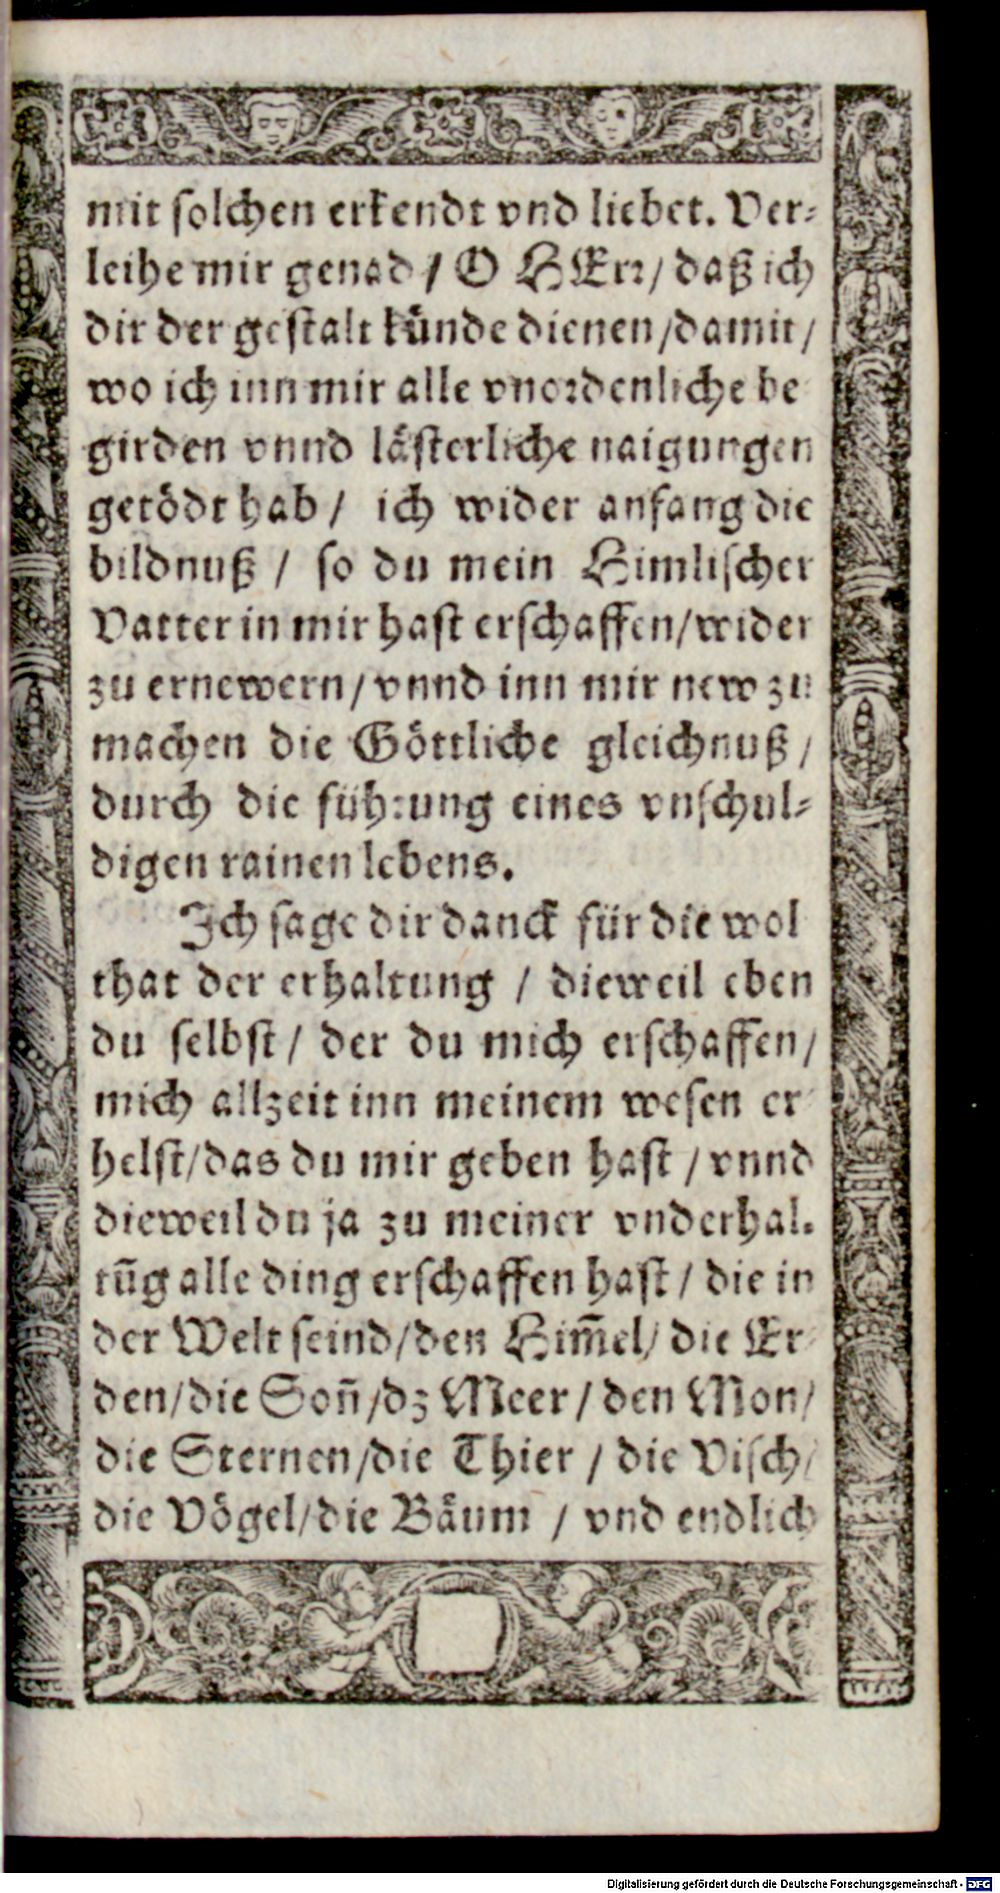 mit ſolchen erkendt vnd liebet. Ver⸗
leihe mir genad / O HErr / daß ich
dir der geſtalt künde dienen / damit /
wo ich inn mir alle vnordenliche be
girden vnnd läſterliche naigungen
getödt hab / ich wider anfang die
bildnuß / ſo du mein Himliſcher
Vatter in mir haſt erſchaffen / wider
zu ernewern / vnnd inn mir new zu
machen die Göttliche gleichnuß /
durch die führung eines vnſchul⸗
digen rainen lebens.
Ich ſage dir danck für die wol
that der erhaltung / dieweil eben
du ſelbſt / der du mich erſchaffen /
mich allzeit inn meinem weſen er
helſt / das du mir geben haſt / vnnd
dieweil du ja zu meiner vnderhal⸗
tũg alle ding erſchaffen haſt / die in
der Welt ſeind / den Him̃el / die Er
den / die Soñ / dz Meer / den Mon /
die Sternen / die Thier / die Viſch /
die Vögel / die Bäum / vnd endlich
Digitalisierung gefördert durch die Deutsche Forschungsgemeinschaft - DFG